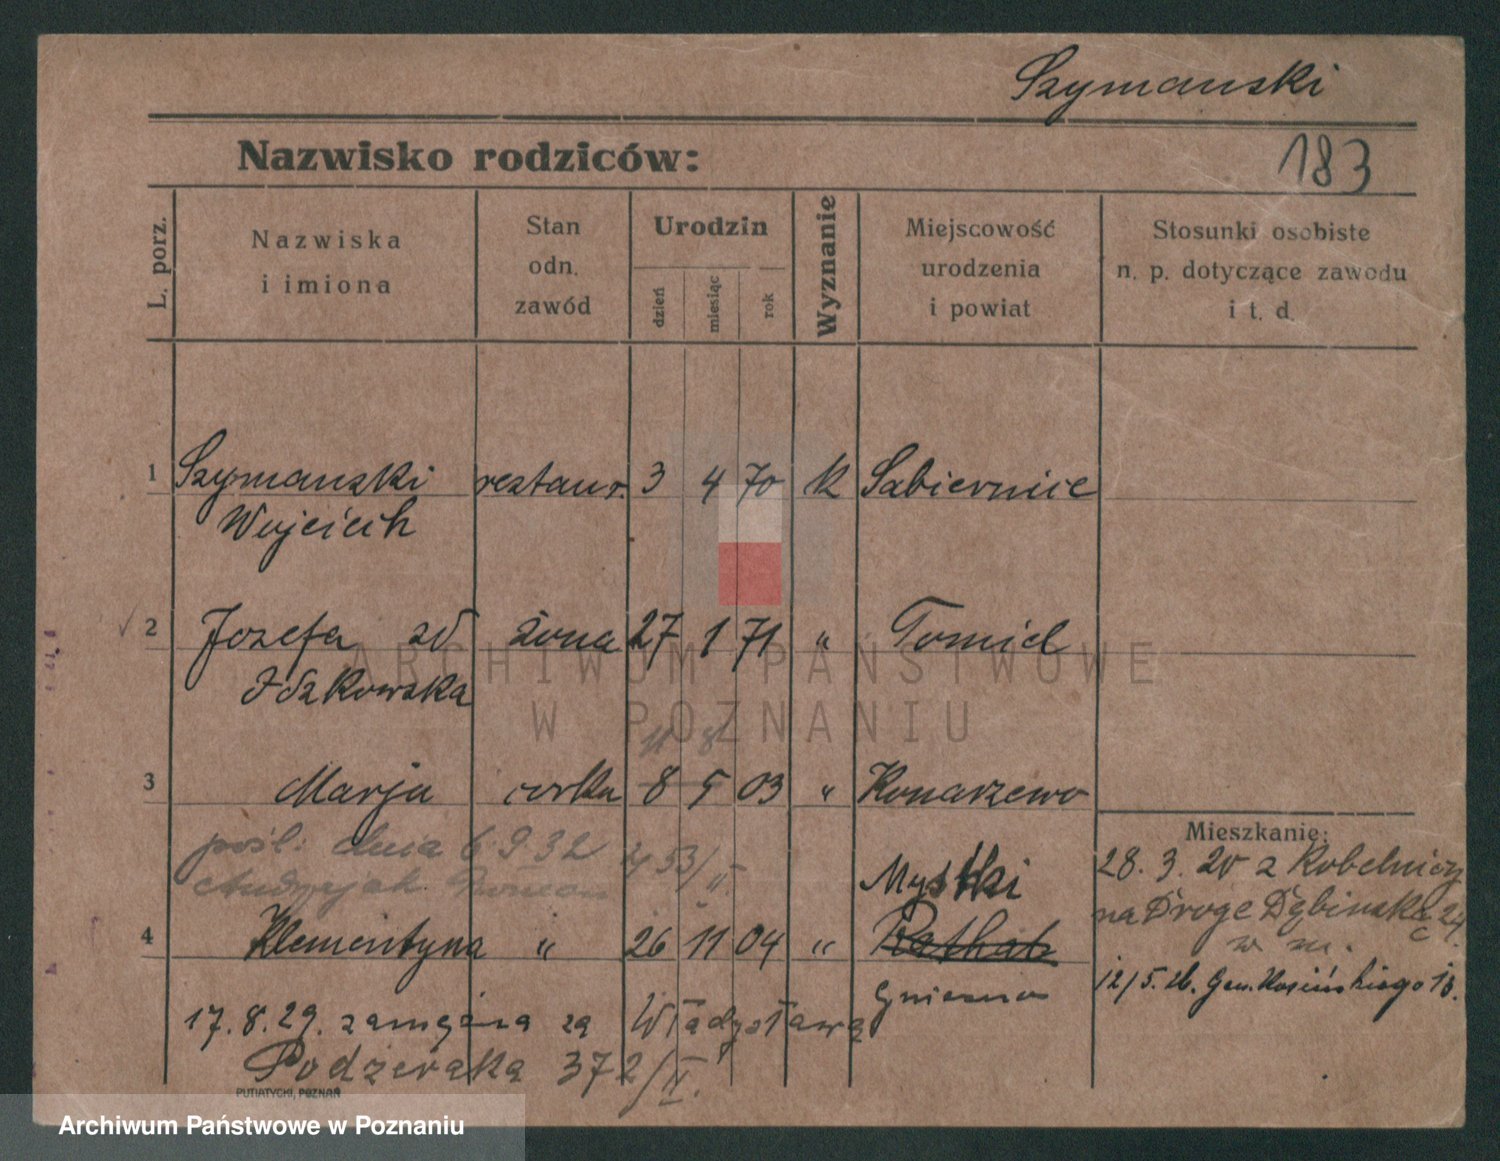 Szymanski
Nazwisko rodziców:
183
L. porz.
Nazwiska
i imiona
Stan
odn.
zawód
Urodzin
dzień
miesiąc
rok
Wyznanie
Miejscowość
urodzenia
i powiat
Stosunki osobiste
n. p. dotyczące zawodu
i t. d.
1 Szymanski restaur. 3 4 70 k Sabiernice
Wojciech
2 Jozefa zd żona 27 1 71 " Tomice
Idzkowska
11 8
3 Marja corka 8 5 03 " Konarzewo
pośl. dnia 6.9.32 453/II.
Mieszkanie:
28. 3. 20 z Kobelnicy
Mystki
na Droge Dębinską 24
c
w m.
4 Klementyna " 26 11 04 "
12/5. Gen. Kosińskiego 13.
Gniezno
17. 8. 29. zamężna za Władysława
Podzeraka 372/II.
PUTIATYCKI, POZNAŃ
ARCHIWUM PAŃSTWOWE
W POZNANIU
Archiwum Państwowe w Poznaniu